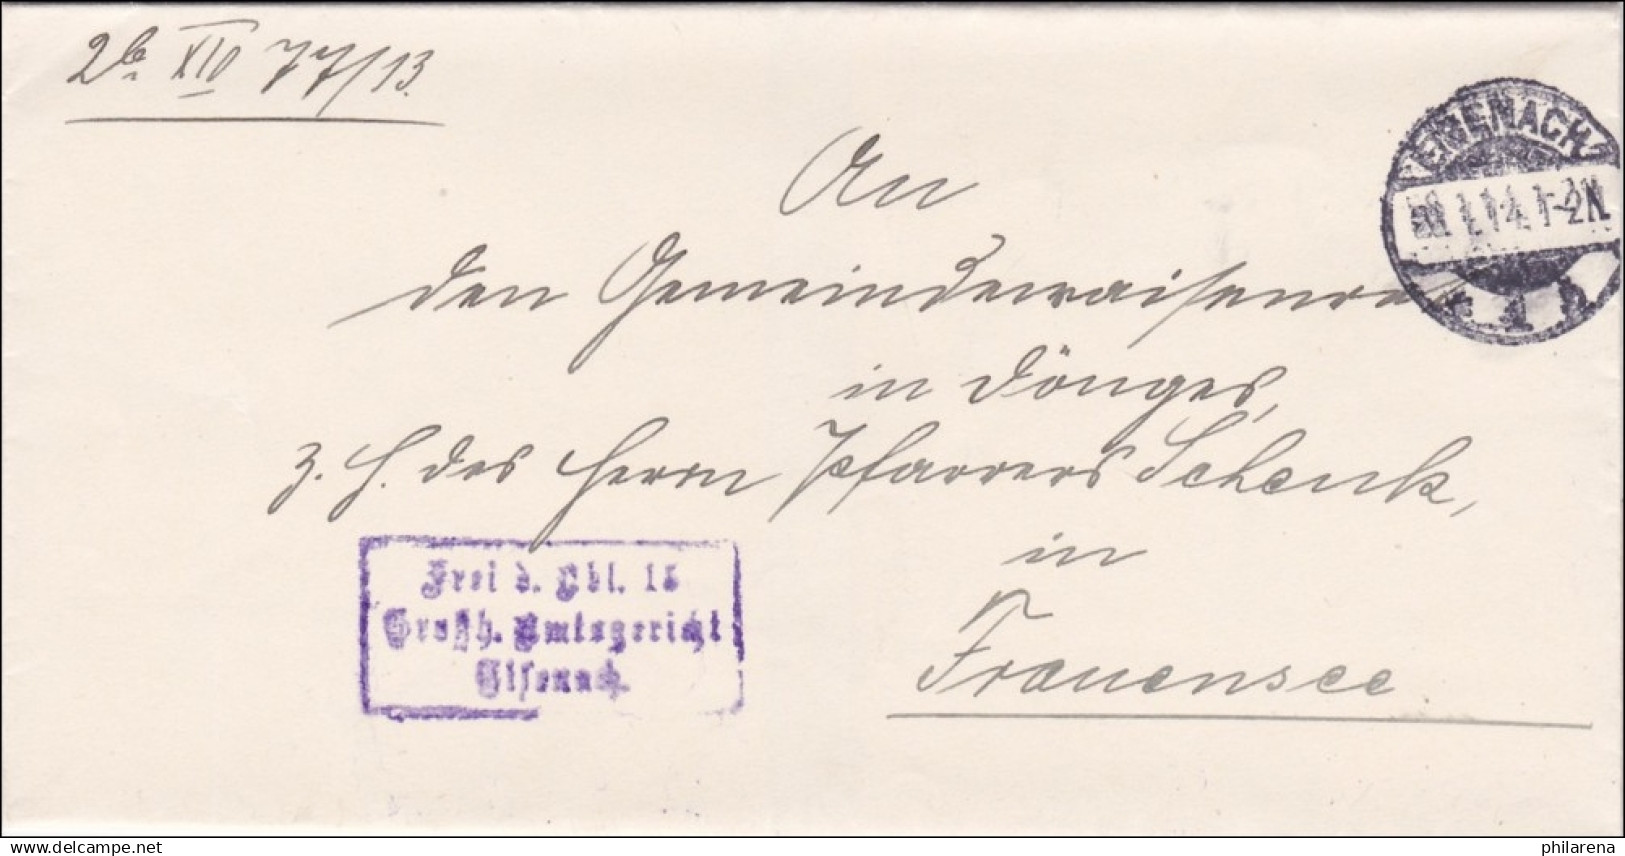 2b. XIV 77/13.
EISENACH
1.14. 1-2N.
* 1 b
An
den Gemeindewaisenra
in Dönges,
z. H. des Herrn Pfarrers Schenk,
in
Frauensee
Frei d. Abl. 15
Großh. Amtsgericht
Eisenach.
©www.delcampe.net
philarena